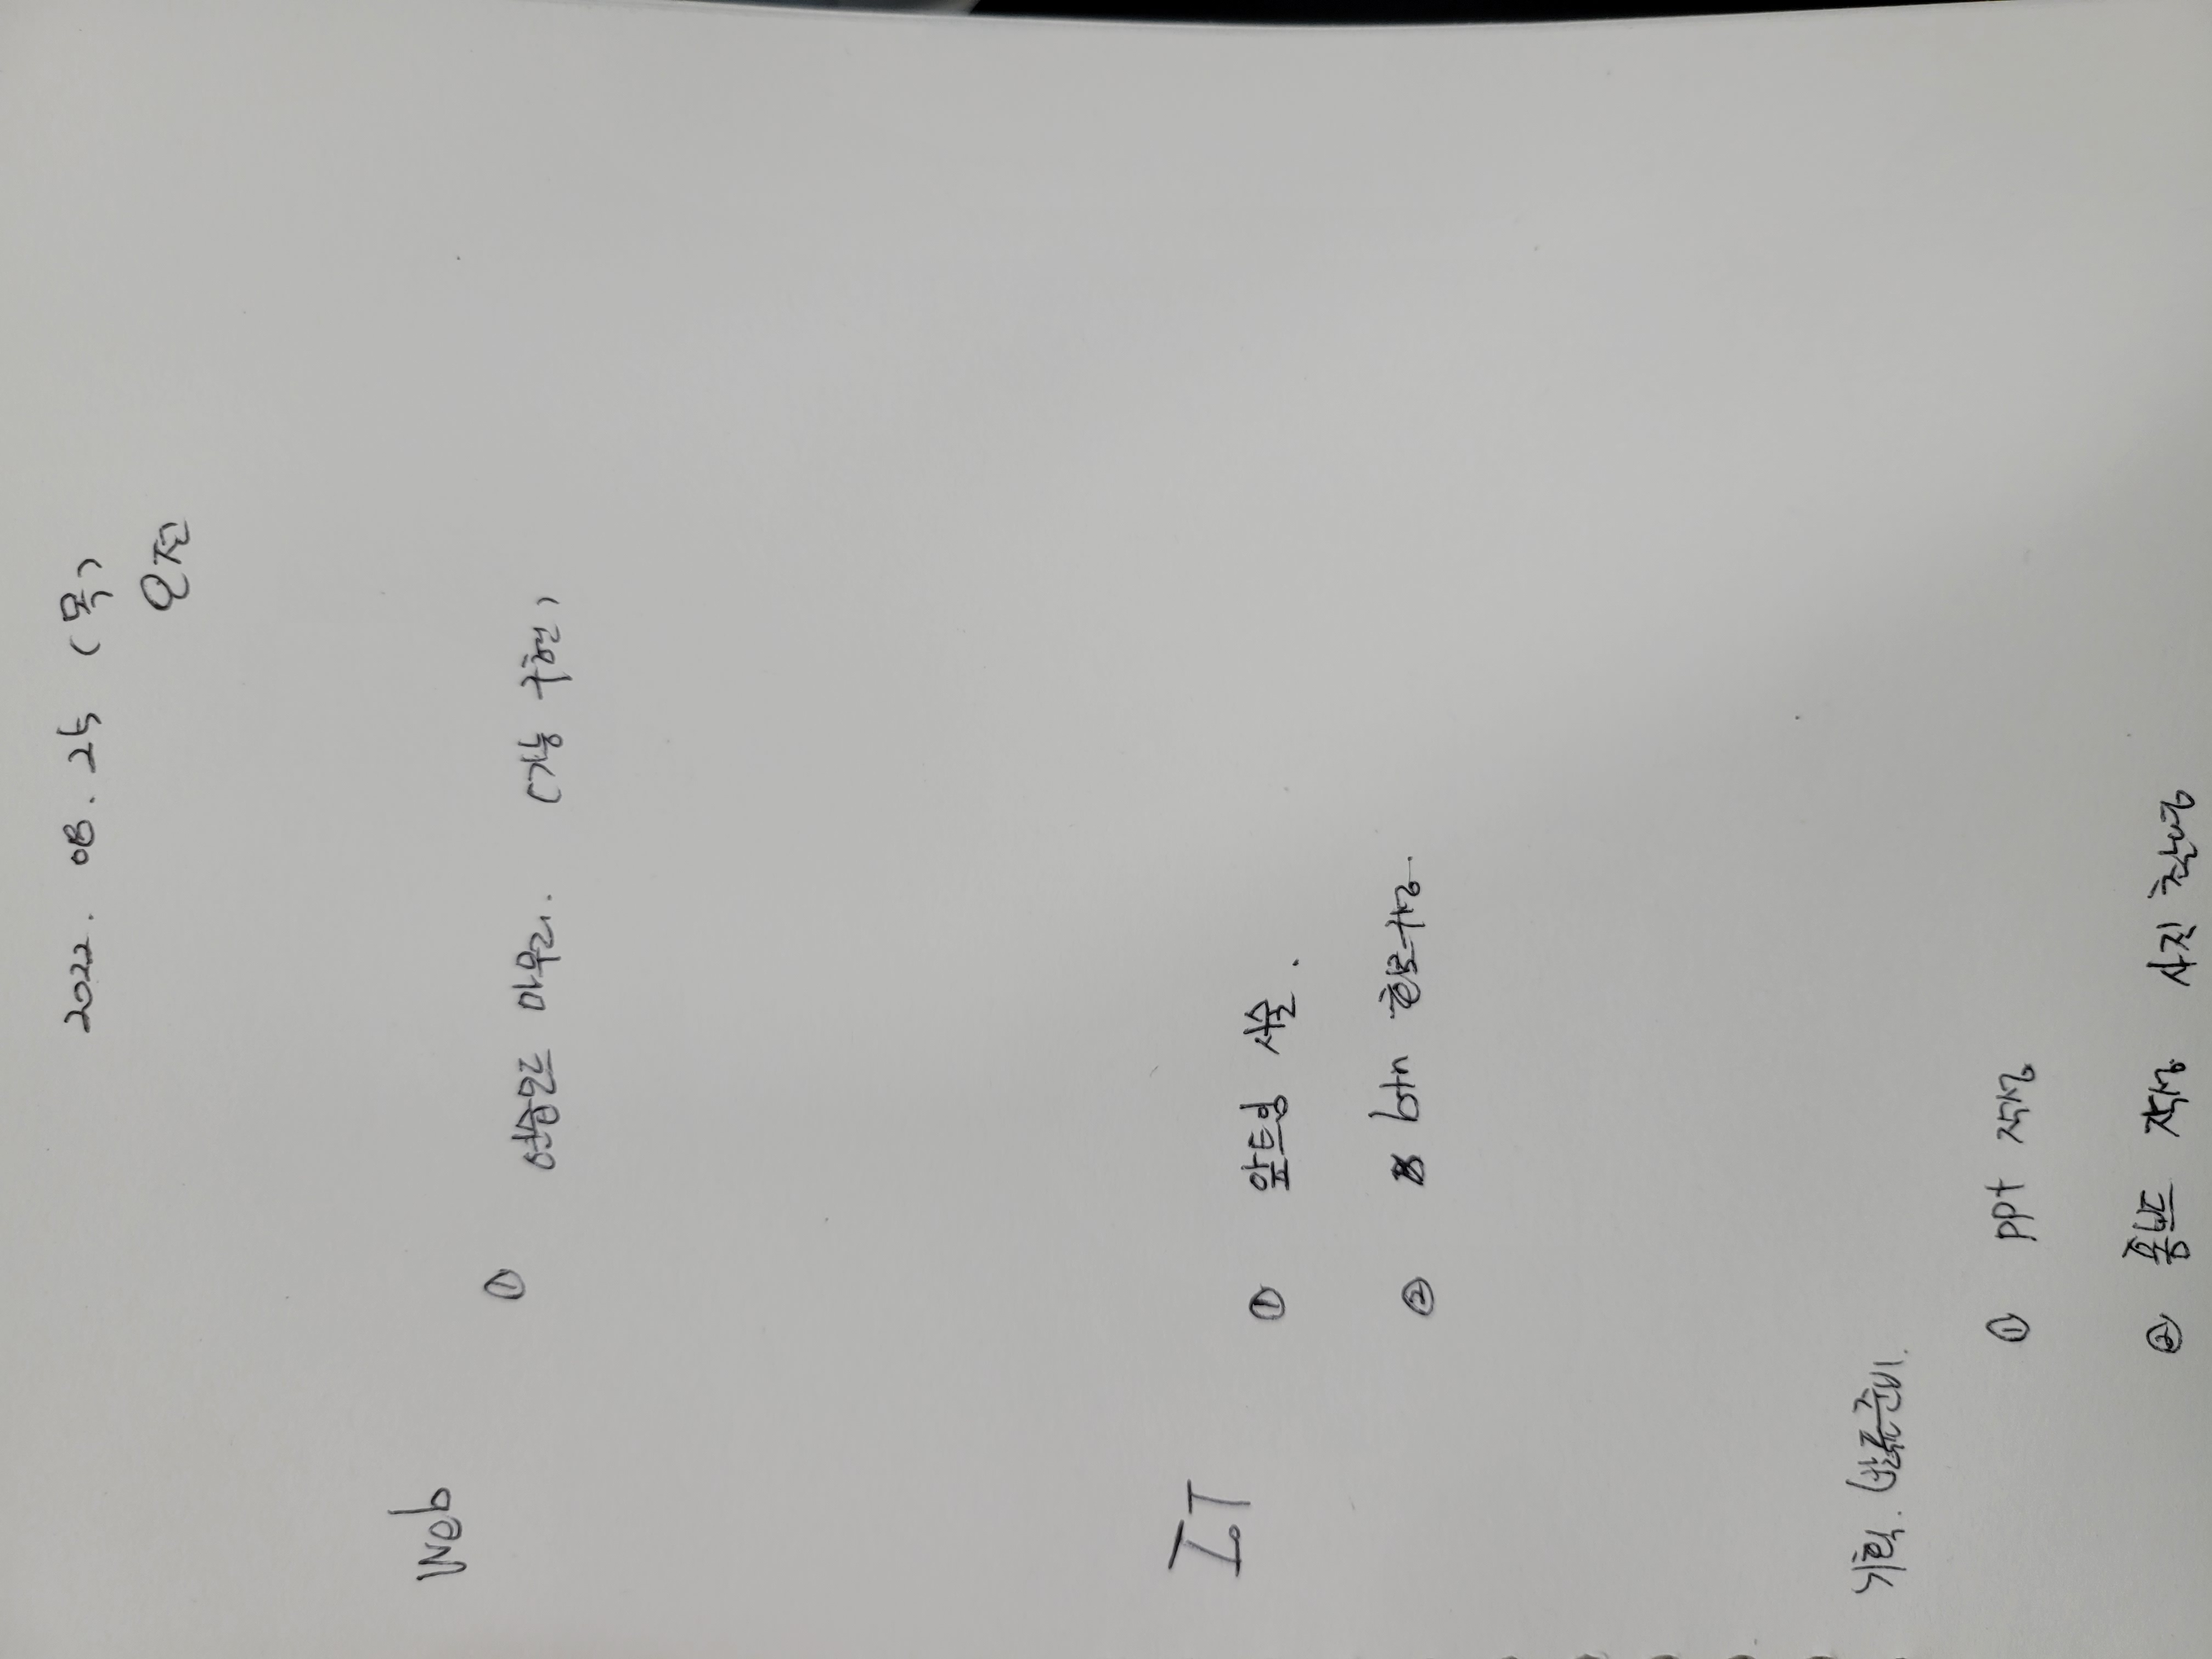 2022. 08. 25 (목)
오전
Web
① 연습모드 마무리. (기능 구현)
IoT
① 앞트임 시술.
② btn 회로구성.
기획. 발표준비.
① ppt 작성
② 폼보드 작성 사진 촬영